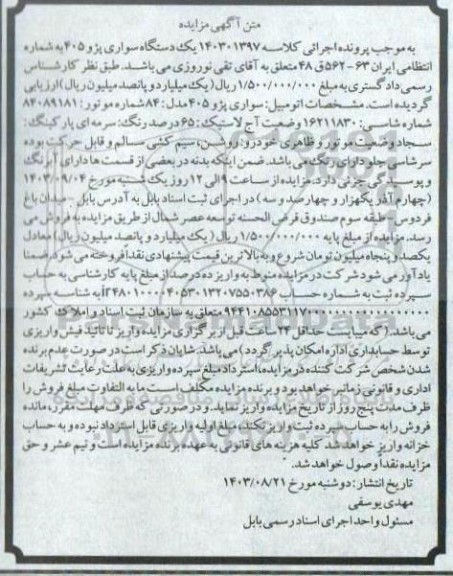 متن آگهی مزایده
به موجب پرونده اجرائی کلاسه ۱۴۰۳۰۱۳۹۷ یک دستگاه سواری پژو ۴۰۵ به شماره
انتظامی ایران ۶۳-۵۶۲ ق ۴۸ متعلق به آقای تقی نوروزی می باشد. طبق نظر کارشناس
رسمی دادگستری به مبلغ ۱/۵۰۰/۰۰۰/۰۰۰ ریال (یک میلیارد و پانصد میلیون ریال) ارزیابی
گردیده است. مشخصات اتومبیل: سواری پژو ۴۰۵ مدل: ۸۴ شماره موتور: ۸۴۰۸۹۱۸۱
شماره شاسی: ۱۶۲۱۱۸۳۰ وضعیت آج لاستیک: ۶۵ درصد رنگ: سرمه ای پارکینگ:
سجاد وضعیت موتور و ظاهری خودرو: روشن، سیم کشی سالم و قابل حرکت بوده
سرشاسی جلو دارای رنگ می باشد. ضمن اینکه بدنه در بعضی از قسمت ها دارای آبرنگ
و پوسیدگی جزئی دارد. مزایده از ساعت ۹ الی ۱۲ روز یک شنبه مورخ ۱۴۰۳/۰۹/۰۴
(چهارم آذر یکهزار و چهارصد و سه) در اجرای ثبت اسناد بابل به آدرس بابل - میدان باغ
فردوس - طبقه سوم صندوق قرض الحسنه توسعه عصر شمال از طریق مزایده به فروش می
رسد. مزایده از مبلغ پایه ۱/۵۰۰/۰۰۰/۰۰۰ ریال (یک میلیارد و پانصد میلیون ریال) معادل
یکصد و پنجاه میلیون تومان شروع و به بالاترین قیمت پیشنهادی نقدا فروخته می شود. ضمنا
یادآور می شود شرکت در مزایده منوط به واریز ده درصد از مبلغ پایه کارشناسی به حساب
سپرده ثبت به شماره حساب به شناسه سپرده
متعلق به سازمان ثبت اسناد و املاک کشور
می باشد. (که میبایست حداقل ۲۴ ساعت قبل از برگزاری مزایده واریز تا تائید فیش واریزی
توسط حسابداری اداره امکان پذیر گردد) می باشد. شایان ذکر است در صورت عدم برنده
شدن شخص شرکت کننده در مزایده، استرداد مبلغ سپرده واریزی به علت رعایت تشریفات
اداری و قانونی زمانبر خواهد بود و برنده مزایده مکلف است ما به التفاوت مبلغ فروش را
ظرف مدت پنج روز از تاریخ مزایده واریز نماید. و در صورتی که ظرف مهلت مقرر، مانده
فروش را به حساب سپرده ثبت واریز نکند، مبلغ اولیه واریزی قابل استرداد نبوده و به حساب
خزانه واریز خواهد شد. کلیه هزینه های قانونی به عهده برنده مزایده است و نیم عشر و حق
مزایده نقداً وصول خواهد شد.
تاریخ انتشار: دوشنبه مورخ ۱۴۰۳/۰۸/۲۱
مهدی یوسفی
مسئول واحد اجرای اسناد رسمی بابل